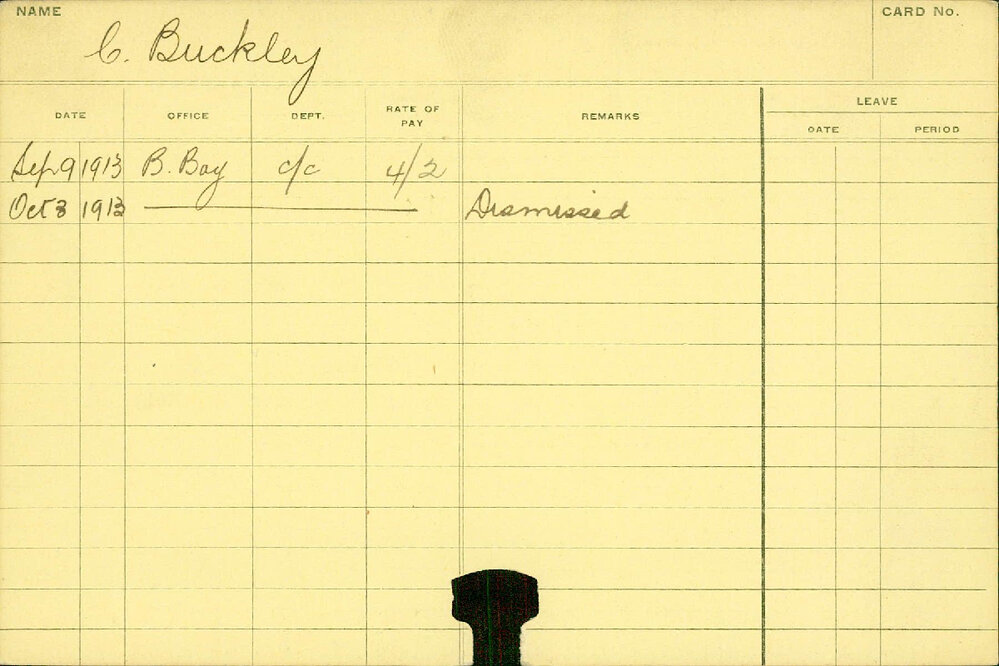 NAME
CARD No.
C. Buckley
DATE OFFICE DEPT. RATE OF PAY REMARKS LEAVE
DATE PERIOD
Sep 9 1913 B. Bay c/c 4/2
Oct 3 1913 Dismissed